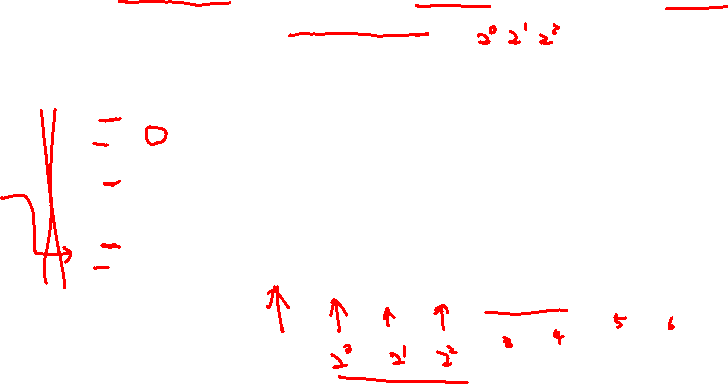 2⁰ 2¹ 2²
0
2⁰ 2¹ 2² 3 4 5 6